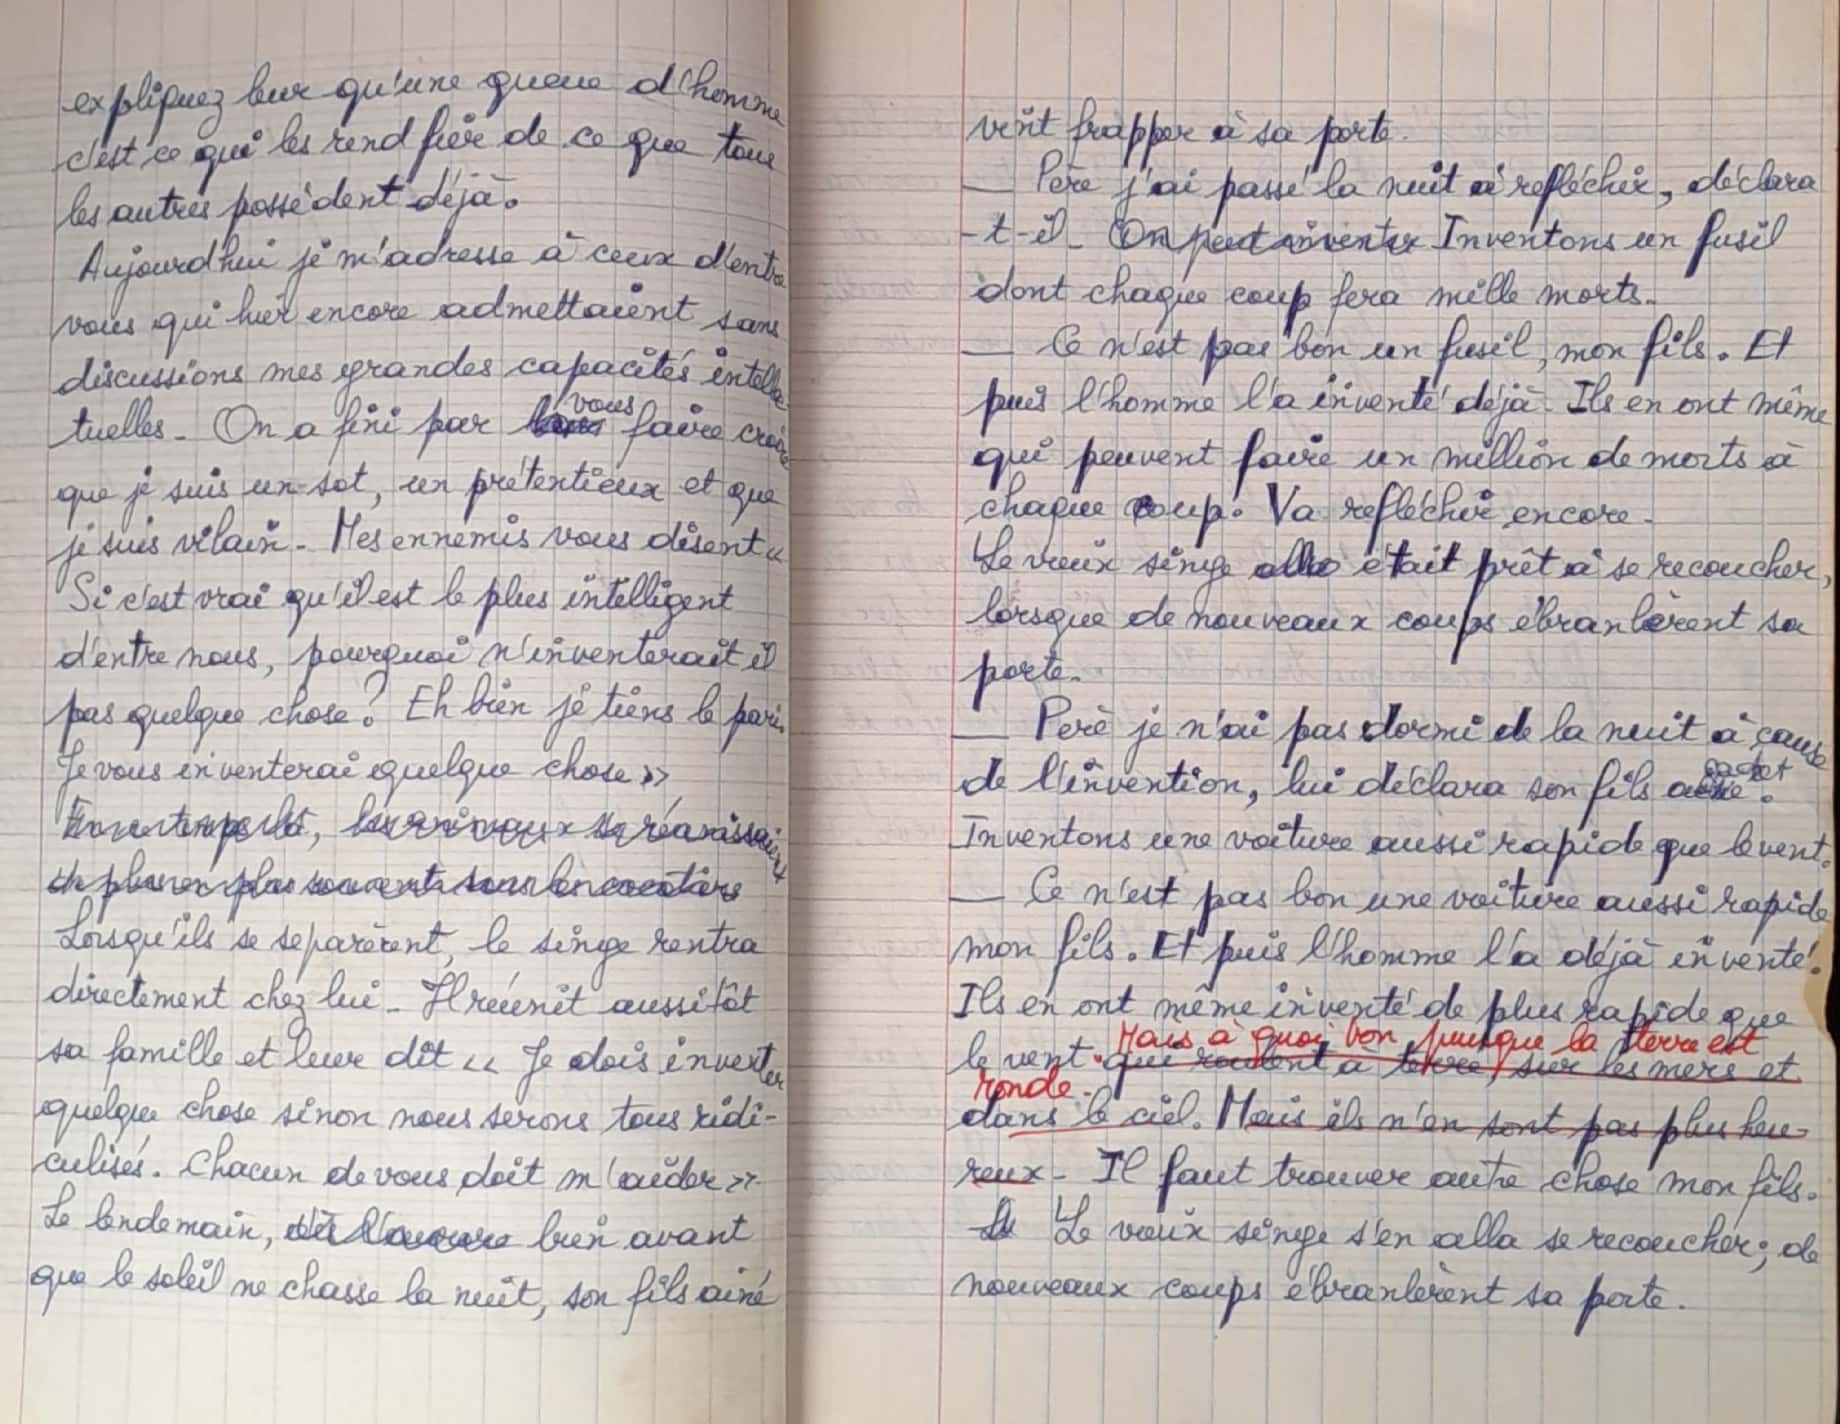 expliquez leur qu'une queue d'homme
c'est ce qui les rend fier de ce que tous
les autres possèdent déjà.
Aujourd'hui je m'adresse à ceux d'entre
vous qui hier encore admettaient sans
discussions mes grandes capacités intellec-
tuelles. On a fini par vous faire croire
que je suis un sot, un prétentieux et que
je suis vilain. Mes ennemis vous disent «
Si c'est vrai qu'il est le plus intelligent
d'entre nous, pourquoi n'inventerait il
pas quelque chose? Eh bien je tiens le pari.
Je vous inventerai quelque chose »
En ce temps là, les animaux se réunissaient
de plus en plus souvent sous les cocotiers
Lorsqu'ils se séparèrent, le singe rentra
directement chez lui. Il réunit aussitôt
sa famille et leur dit « Je dois inventer
quelque chose sinon nous serons tous ridi-
culisés. Chacun de vous doit m'aider ».
Le lendemain, dès l'aurore bien avant
que le soleil ne chasse la nuit, son fils ainé
vint frapper à sa porte.
— Père j'ai passé la nuit à reflechir, déclara
-t-il. On peut inventer Inventons un fusil
dont chaque coup fera mille morts.
— Ce n'est pas bon un fusil, mon fils. Et
puis l'homme l'a inventé déjà. Ils en ont même
qui peuvent faire un million de morts à
chaque coup. Va reflechir encore.
Le vieux singe alla était prêt à se recoucher,
lorsque de nouveaux coups ébranlèrent sa
porte.
— Père je n'ai pas dormi de la nuit à cause
de l'invention, lui déclara son fils cadet.
Inventons une voiture aussi rapide que le vent.
— Ce n'est pas bon une voiture aussi rapide
mon fils. Et puis l'homme l'a déjà inventé.
Ils en ont même inventé de plus rapide que
Mais à quoi bon puisque la terre est
le vent. qui roulent à terre, sur les mers et
ronde.
dans le ciel. Mais ils n'en sont pas plus heu-
reux. Il faut trouver autre chose mon fils.
Le Le vieux singe s'en alla se recoucher; de
nouveaux coups ébranlèrent sa porte.